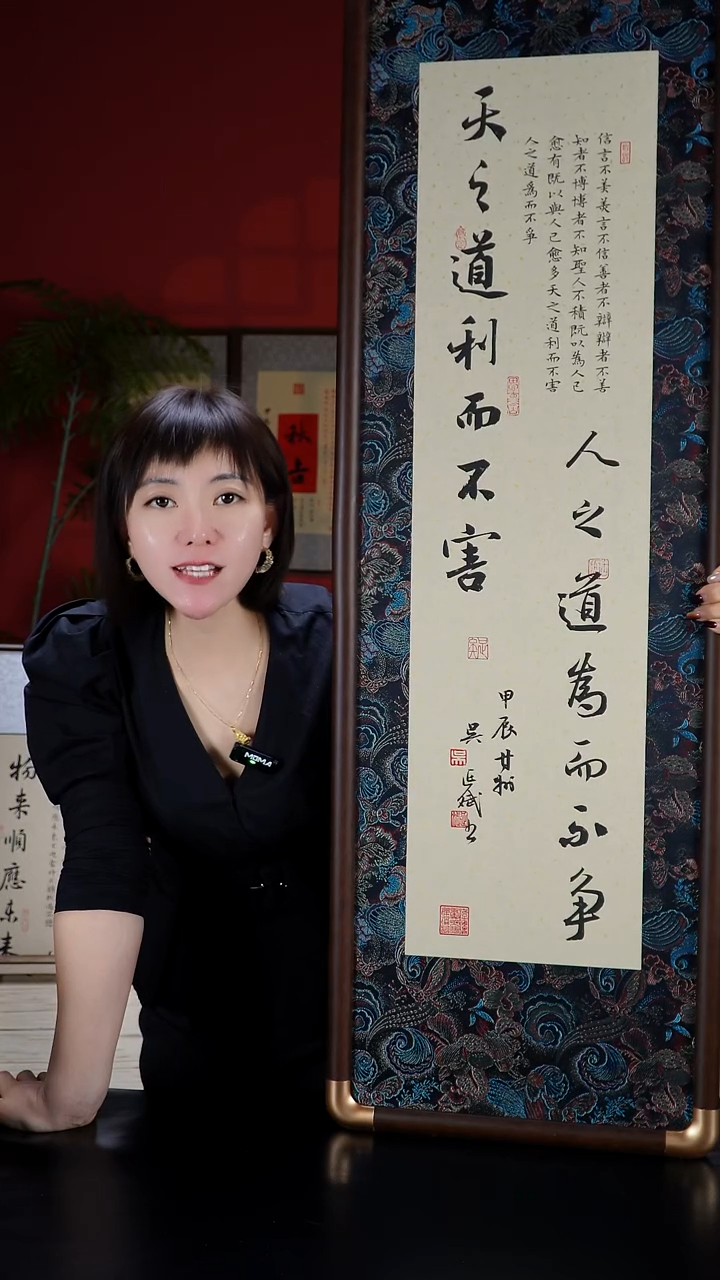 信言不美美言不信善者不辯辯者不善
知者不博博者不知聖人不積既以為人己
愈有既以與人己愈多天之道利而不害
人之道為而不爭
天之道利而不害
人之道為而不争
甲辰
吴
物来順應未来
MOMA